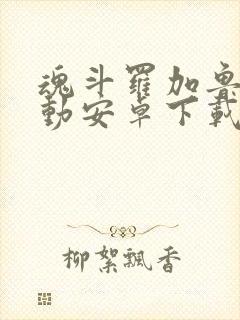 魂斗羅加魯
動安卓下載
柳絮飄香